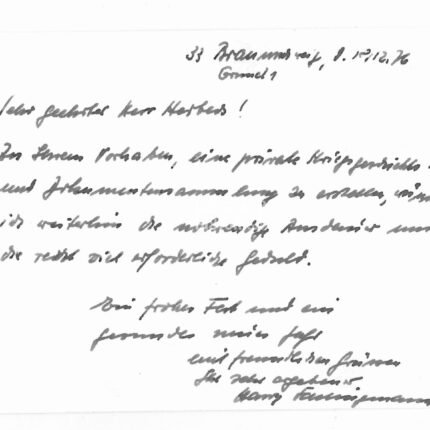 33 Braunschweig, d. 17.12.76
Sehr geehrter Herr Herbers!
Zu Ihrem Vorhaben, eine private Kriegsgeschichts-
und Dokumentensammlung zu erstellen, wünsche
ich weiterhin die notwendige Ausdauer und
die recht viel erforderliche Geduld.
Ein frohes Fest und ein
gesundes neues Jahr
mit freundlichen Grüssen
Ihr sehr ergebener
Harry